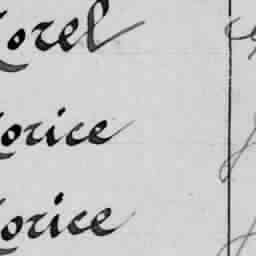 orel
orice
orice